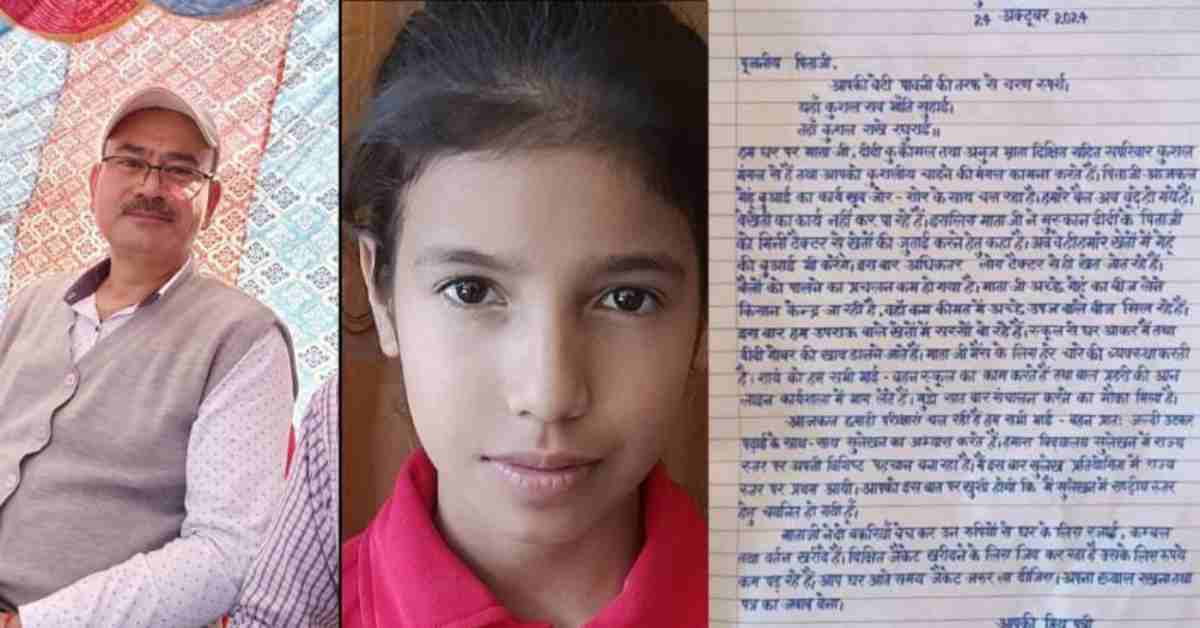 24 अक्टूबर 2024
पूजनीय पिताजी,
आपकी बेटी पावनी की तरफ से चरण स्पर्श।
यहाँ कुशल सब भाँति सुहाई।
तहाँ कुशल राखे रघुराई॥
हम घर पर माता जी, दीदी कु कोमल तथा अनुज भ्राता दिक्षित सहित सपरिवार कुशल
मंगल से हैं तथा आपकी कुशलीय चाहने की मंगल कामना करते हैं। पिताजी आजकल
गेहूं बुआई का कार्य खूब जोर-शोर के साथ चल रहा है। हमारे बैल अब बूढ़े हो गये हैं।
वे खेतों का कार्य नहीं कर पा रहे हैं। इसलिए माता जी ने मुस्कान दीदी के पिताजी
को मिनी टैक्टर से खेतों की जुताई करने हेतु कहा है। अब वे ही हमारे खेतों में गेहूं
की बुआई भी करेंगे। इस बार अधिकतर लोग टैक्टर से ही खेत जोत रहे हैं।
बैलों को पालने का प्रचलन कम हो गया है। माता जी अच्छे गेहूं का बीज लेने
किसान केन्द्र जा रही है, वहाँ कम कीमत में अच्छे उपज वाले बीज मिल रहे हैं।
इस बार हम उपराऊ वाले खेतों में सरसों बो रहे हैं। स्कूल से घर आकर मैं तथा
दीदी गोबर की खाद डालने जाते हैं। माता जी भैंस के लिए हरे चारे की व्यवस्था करती
है। सायं को हम सभी भाई-बहन स्कूल का काम करते हैं तथा बाल प्रहरी की आन
लाइन कार्यशाला में भाग लेते हैं। मुझे सात बार संचालन करने का मौका मिला है।
आजकल हमारी परीक्षाएं चल रही है हम सभी भाई-बहन प्रातः जल्दी उठकर
पढ़ाई के साथ-साथ सुलेखन का अभ्यास करते हैं। हमारा विद्यालय सुलेखन में राज्य
स्तर पर अपनी विशिष्ट पहचान बना रहा है। मैं इस बार सुलेख प्रतियोगिता में राज्य
स्तर पर प्रथम आयी। आपको इस बात पर खुशी होगी कि मैं सुलेखन में राष्ट्रीय स्तर
हेतु चयनित हो गयी हूँ।
माताजी ने दो बकरियाँ बेच कर उन रुपियों से घर के लिए रजाई, कम्बल
तथा बर्तन खरीदे हैं। दिक्षित जैकेट खरीदने के लिए जिद कर रहा है उसके लिए रुपये
कम पड़ रहे हैं। आप घर आते समय जैकेट जरूर ला दीजिए। अपना ख्याल रखना तथा
पत्र का जवाब देना।
आपकी प्रिय पुत्री